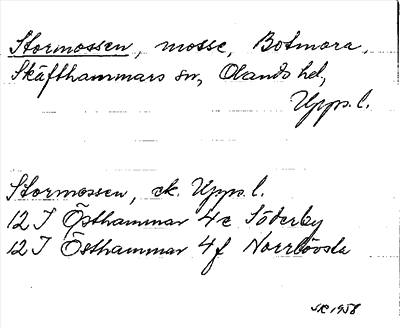 Stormossen, mosse, Botmora,
Skäfthammars sn, Olands hd,
Upps. l.
Stormossen, ek. Upps. l.
12 I Östhammar 4e Söderby
12 I Östhammar 4f Norrlövsta
SK 1958